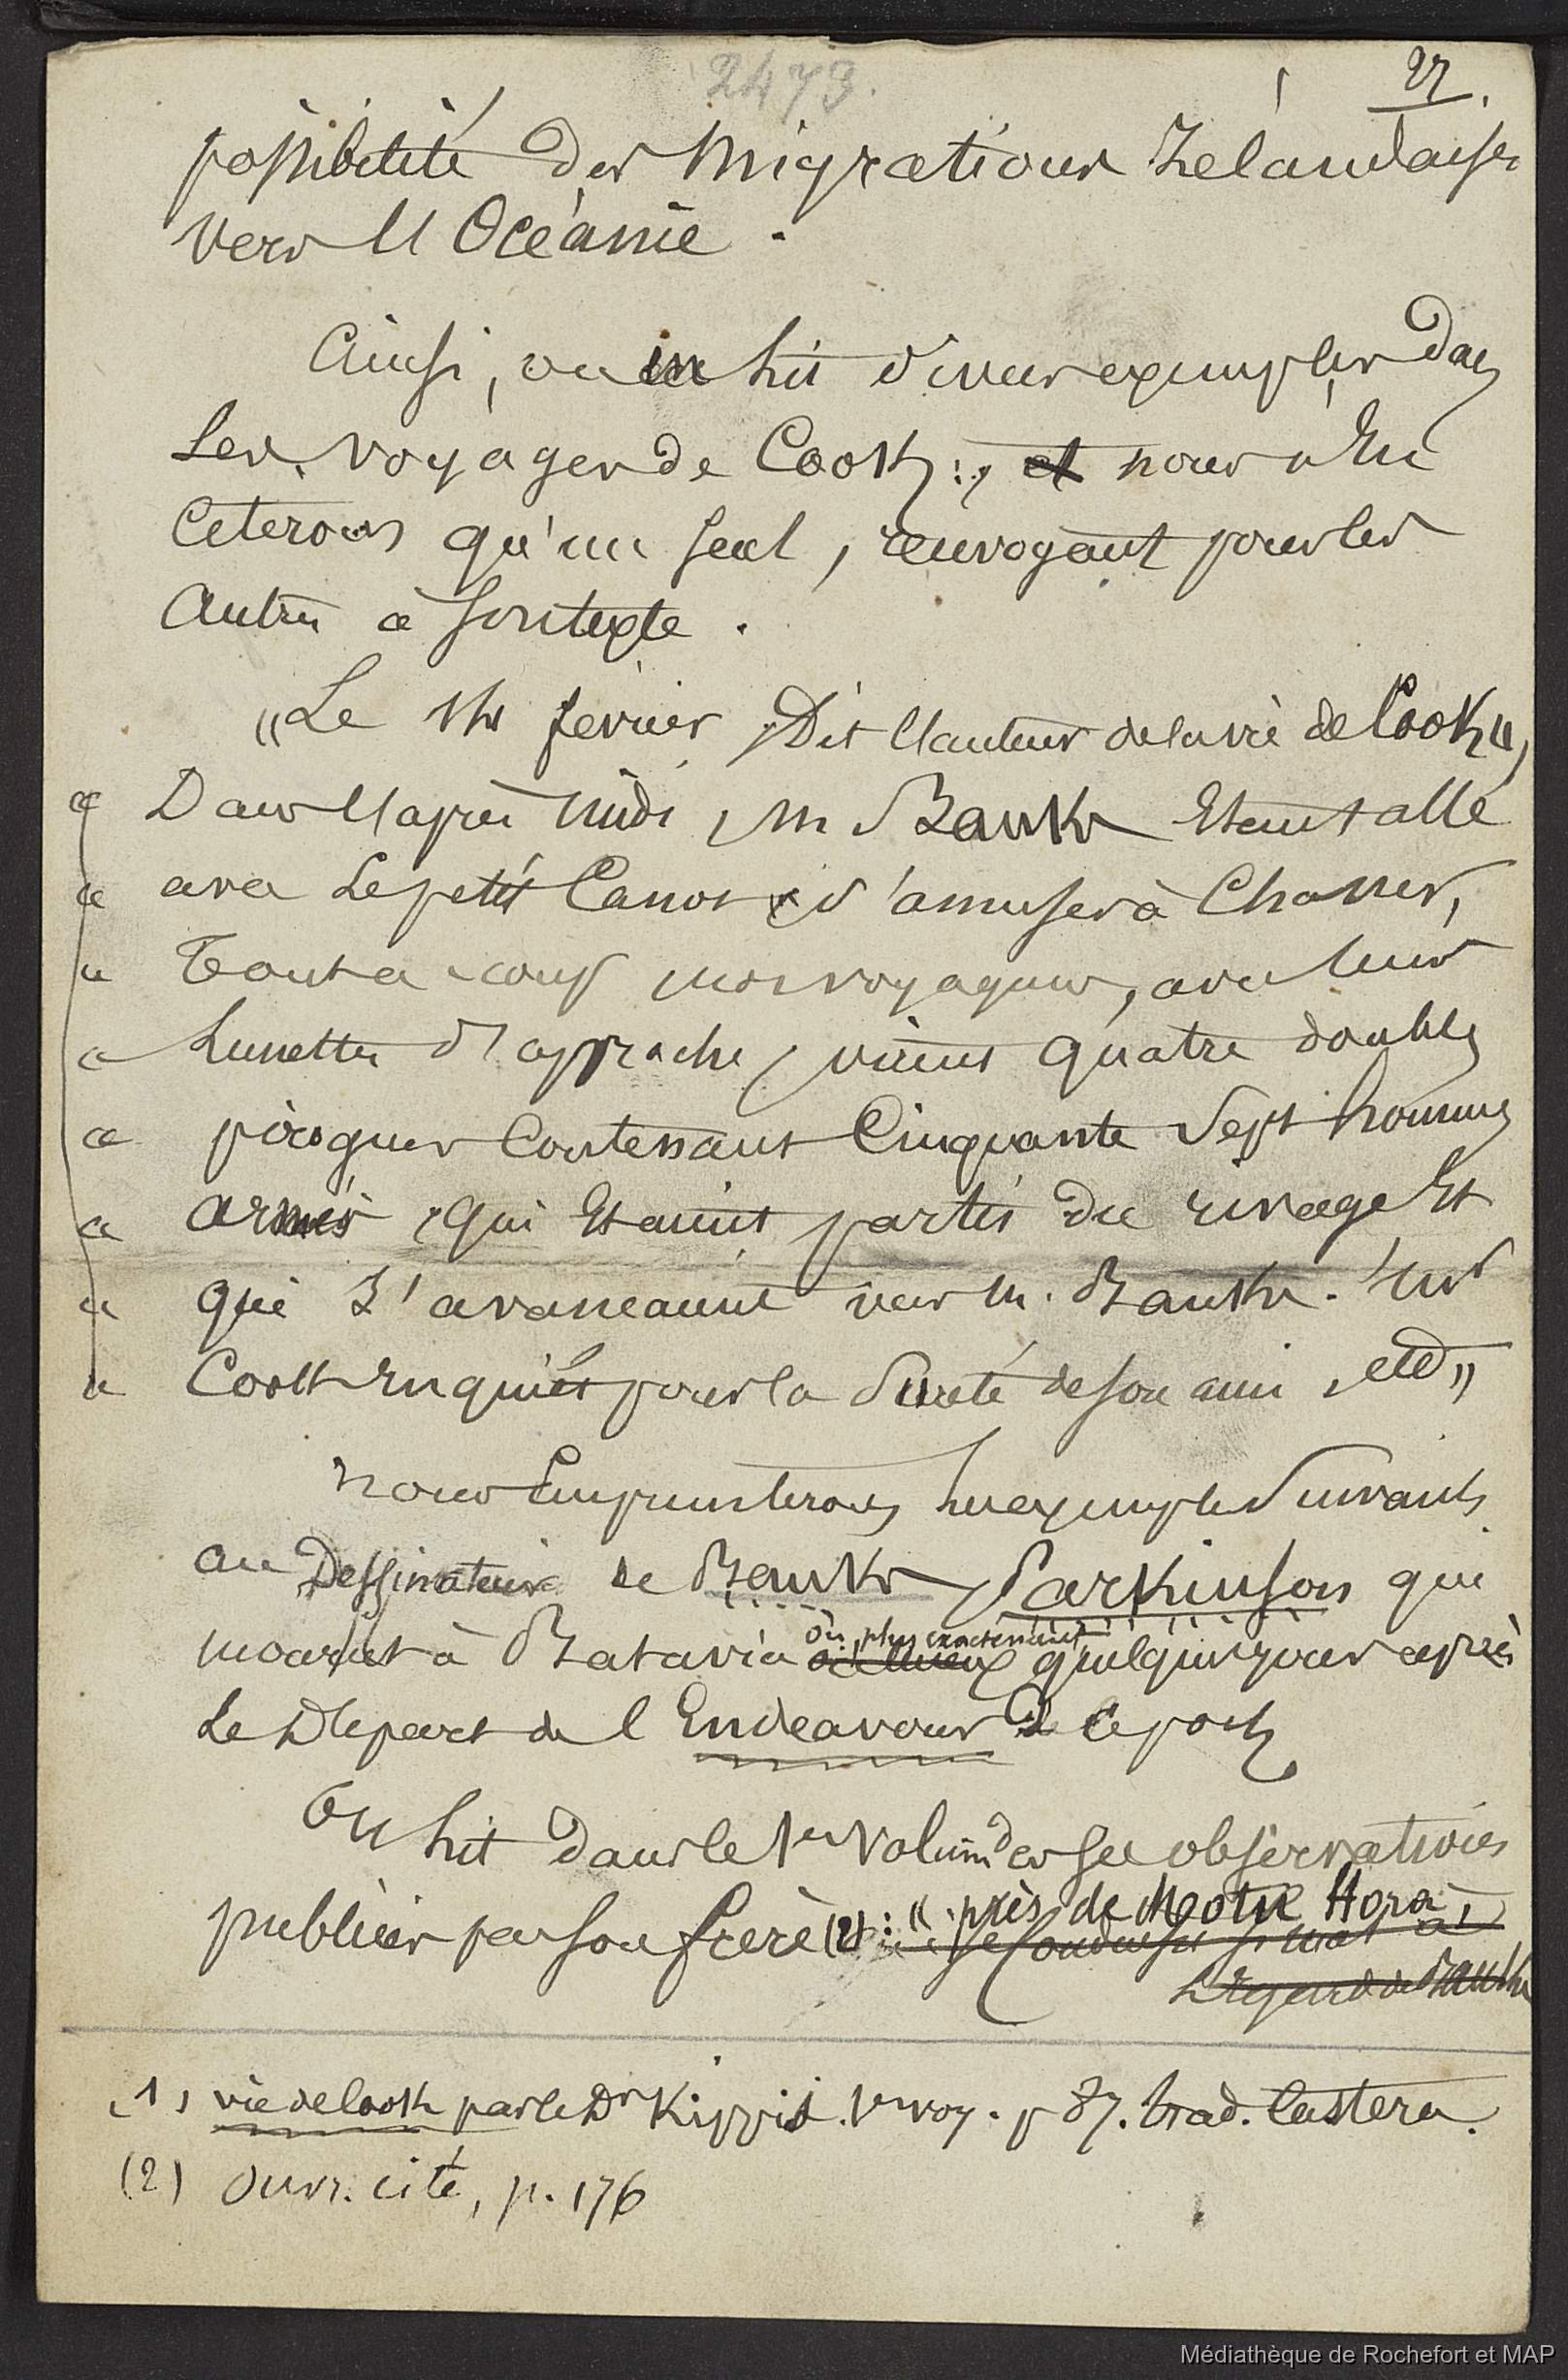 2473.
27
possibilité des migrations Zélandaises
vers l'Océanie.
Ainsi, on en lit divers exemples dans
les voyages de Cook; et nous n'en
citerons qu'un seul, renvoyant pour les
autres à son texte.
"Le février, dit l'auteur de la vie de Cook (1),
« Dans l'après midi, M Banks étant allé
« avec le petit canot s'amuser à chasser,
« tout à coup nos voyageurs, avec leurs
« lunettes d'approche, virent quatre doubles
« pirogues contenant cinquante sept hommes
« armés, qui étaient partis du rivage et
« qui s'avancaient vers M. Banks.
« Cook inquiet pour la sureté de son ami, etc"
nous emprunterons les exemples suivants
au Dessinateur de Banks, Parkinson qui
ou, plus exactement
mourut à Batavia ou mieux quelques jours après
le départ de l'Endeavour de ce port
On lit dans le 1er volume de ses observations
publiées par son frère (2): " près de Motu Hora,
se conduisit si mal à
l'égard de Banks
(1) vie de Cook par le Dr Kippis. 1er voy. p 87. trad. Castera.
(2) Ouvr. cité, p. 176
Médiathèque de Rochefort et MAP